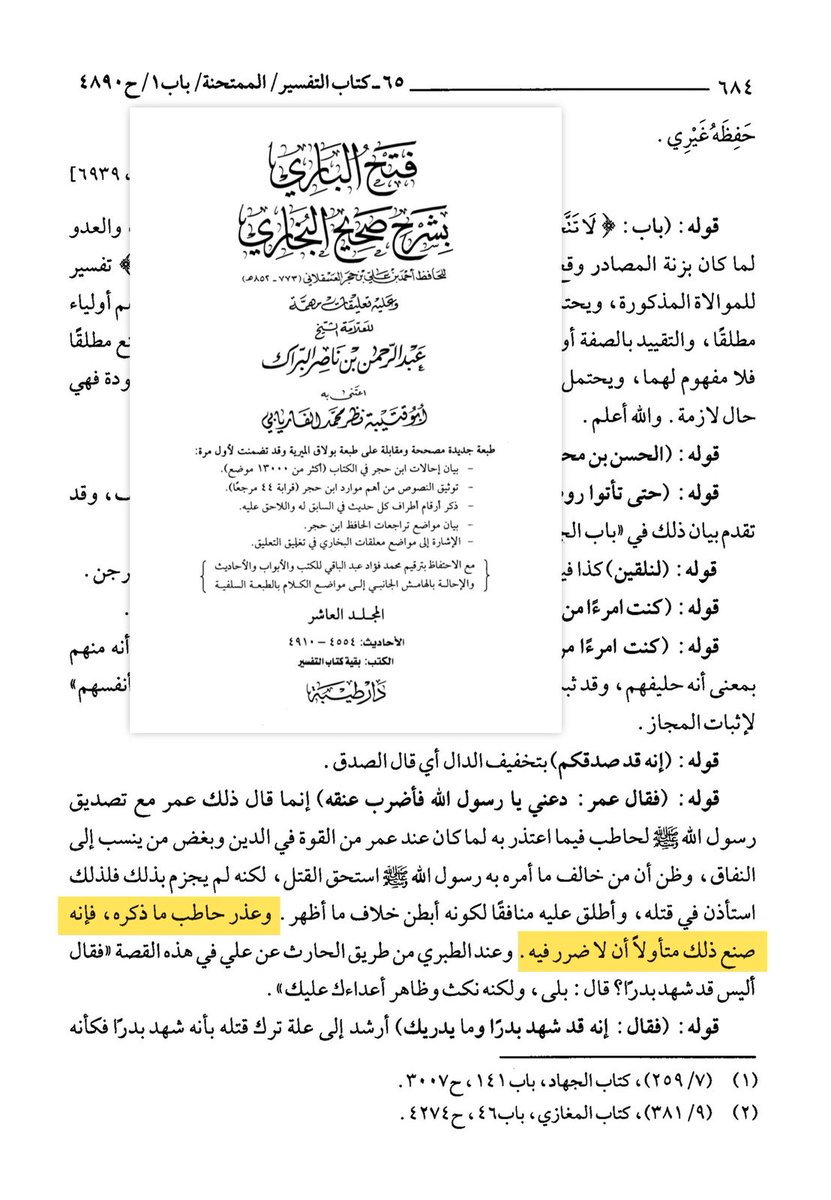 ٦٨٤ ــــــ ٦٥ـ كتاب التفسير/ الممتحنة/ باب١/ ح٤٨٩٠
حَفِظَهُ غَيْرِي .
، ٦٩٣٩]
قوله : (باب : ﴿ لَا
والعدو
لما كان بزنة المصادر
﴾ تفسير
للموالاة المذكورة ،
أولياء
مطلقًا ، والتقييد بالصفة
مطلقًا
فلا مفهوم لهما ، ويحتمل
فهي
حال لازمة . والله أعلم .
قوله : (الحسن بن
قوله : (حتى تأتوا
، وقد
تقدم بيان ذلك في «باب
قوله : (لنلقين) كذا
قوله : (كنت امرءًا من
قوله : (كنت امرءًا
أنه منهم
بمعنى أنه حليفهم ، وقد
أنفسهم»
لإثبات المجاز .
فتح الباري
بشرح صحيح البخاري
للحافظ أحمد بن علي بن حجر العسقلاني (٧٧٣ - ٨٥٢هـ)
وعليه تعليقات مهمة
للعلامة الشيخ
عبد الرحمن بن ناصر البراك
اعتنى به
أبو قتيبة نظر محمد الفاريابي
طبعة جديدة مصححة ومقابلة على طبعة بولاق الميرية وقد تضمنت لأول مرة:
- بيان إحالات ابن حجر في الكتاب (أكثر من ١٣٠٠٠ موضع).
- توثيق النصوص من أهم موارد ابن حجر (قرابة ٤٤ مرجعًا).
- ذكر أرقام أطراف كل حديث في السابق له واللاحق عليه.
- بيان مواضع تراجعات الحافظ ابن حجر.
- الإشارة إلى مواضع معلقات البخاري في تغليق التعليق.
مع الاحتفاظ بترقيم محمد فؤاد عبد الباقي للكتب والأبواب والأحاديث
والإحالة بالهامش الجانبي إلى مواضع الكلام بالطبعة السلفية
المجلد العاشر
الأحاديث: ٤٥٥٤ - ٤٩١٠
الكتب: بقية كتاب التفسير
دار طيبة
قوله : (إنه قد صدقكم) بتخفيف الدال أي قال الصدق .
قوله : (فقال عمر : دعني يا رسول الله فأضرب عنقه) إنما قال ذلك عمر مع تصديق
رسول الله ﷺ لحاطب فيما اعتذر به لما كان عند عمر من القوة في الدين وبغض من ينسب إلى
النفاق ، وظن أن من خالف ما أمره به رسول الله ﷺ استحق القتل ، لكنه لم يجزم بذلك فلذلك
استأذن في قتله ، وأطلق عليه منافقًا لكونه أبطن خلاف ما أظهر . وعذر حاطب ما ذكره ، فإنه
صنع ذلك متأولاً أن لا ضرر فيه . وعند الطبري من طريق الحارث عن علي في هذه القصة «فقال
أليس قد شهد بدرًا؟ قال : بلى ، ولكنه نكث وظاهر أعداءك عليك» .
قوله : (فقال : إنه قد شهد بدرًا وما يدريك) أرشد إلى علة ترك قتله بأنه شهد بدرًا فكأنه
(١) (٧/ ٢٥٩) ، كتاب الجهاد ، باب ١٤١ ، ح٣٠٠٧ .
(٢) (٩/ ٣٨١) ، كتاب المغازي ، باب٤٦ ، ح٤٢٧٤ .